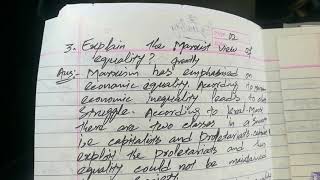 02
3. Explain the Marxist view of
equality? greatly
Ans:- Marxism has emphasised on
economic equality. According to
economic inequality leads to
struggle. According to Karl-Marx
there are two classes in a
i.e capitalists and Proletariats
exploit the Proletariats and
equality could not be maintained